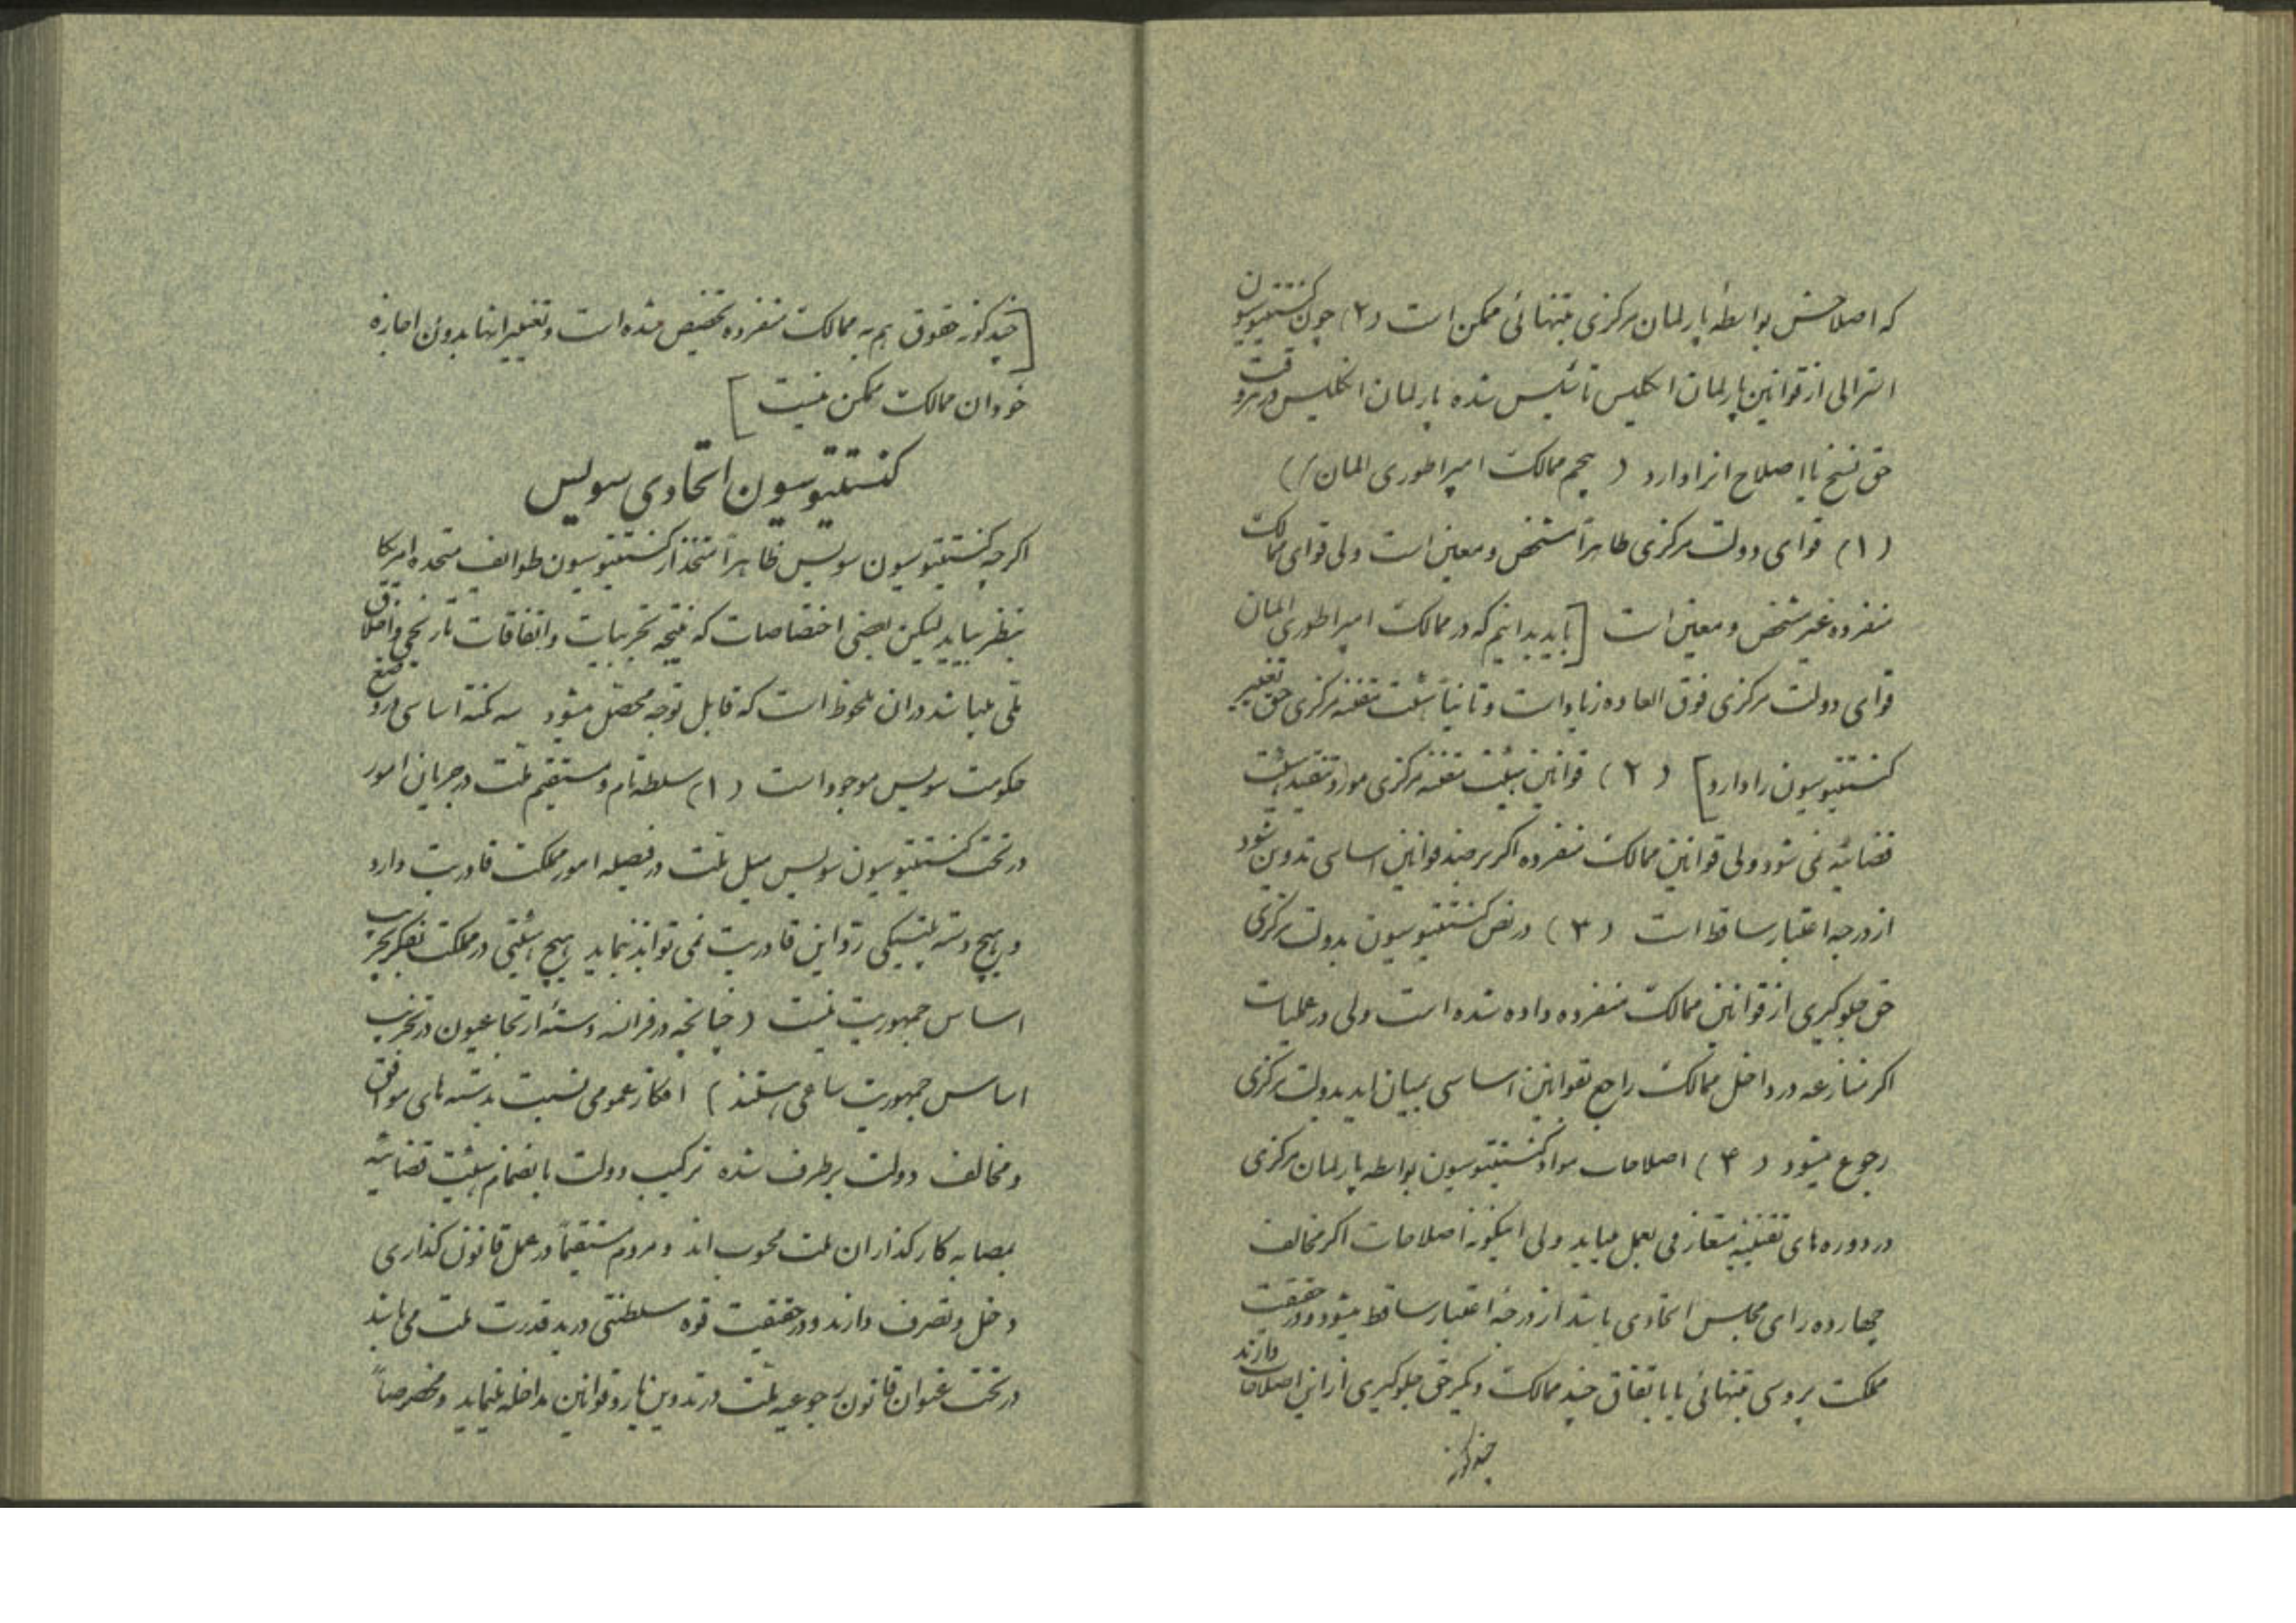 که اصلاحش بواسطه پارلمان مرکزی بتنهائی ممکن است (۲) چون کنستیتوسیون
استرالی از قوانین پارلمان انکلیس تأسیس شده پارلمان انکلیس در هر وقت
حق نسخ یا اصلاح انرا دارد ( پنجم ممالک امپراطوری المان )
(۱) قوای دولت مرکزی ظاهراً مشخص و معین است ولی قوای ممالک
منفرده غیر مشخص و معین است [باید بدانیم که در ممالک امپراطوری المان
قوای دولت مرکزی فوق العاده زیاد است و ثانیاً هیئت مقننه مرکزی حق تغییر
کنستیتوسیون را دارد] (۲) قوانین هیئت مقننه مرکزی مورد تنقید هیئت
قضائیه نمی شود ولی قوانین ممالک منفرده اکر بر ضد قوانین اساسی تدوین شود
از درجه اعتبار ساقط است (۳) در نص کنستیتوسیون بدولت مرکزی
حق جلوکیری از قوانین ممالک منفرده داده شده است ولی در عملیات
اکر منازعه در داخل ممالک راجع بقوانین اساسی بمیان اید بدولت مرکزی
رجوع میشود (۴) اصلاحات مواد کنستیتوسیون بواسطه پارلمان مرکزی
در دوره های تقنینیه متعارفی بعمل میاید ولی اینکونه اصلاحات اکر مخالف
چهارده رای مجلس اتحادی باشد از درجه اعتبار ساقط میشود و در حقیقت
مملکت پروسی بتنهائی یا باتفاق چند ممالک دیکر حق جلوکیری از این اصلاحات دارند
چند کونه
[چند کونه حقوق هم به ممالک منفرده تخصیص شده است و تغییر انها بدون اجازه
خود ان ممالک ممکن نیست]
کنستیتوسیون اتحادی سویس
اکر چه کنستیتوسیون سویس ظاهراً متخذ از کنستیتوسیون طوایف متحده امریکا
بنظر میاید لیکن بعضی اختصاصات که نتیجه تجربیات و اتفاقات تاریخی و اخلاق
ملی میباشد در ان ملحوظ است که قابل توجه محصل میشود سه نکته اساسی در وضع
حکومت سویس موجود است (۱) سلطه تام و مستقیم ملت در جریان امور
در تحت کنستیتوسیون سویس میل ملت در فیصله امور مملکت قادریت دارد
و هیچ دسته پلتیکی رد این قادریت نمی تواند نماید هیچ هیئتی در مملکت بفکر تخریب
اساس جمهوریت نیست (چنانچه در فرانسه دسته ارتجاعیون در تخریب
اساس جمهوریت ساعی هستند) افکار عمومی نسبت بدسته های موافق
و مخالف دولت برطرف شده ترکیب دولت بانضمام هیئت قضائیه
بمصابه کارکذاران ملت محسوب اند و مردم مستقیماً در عمل قانون کذاری
دخل و تصرف دارند و در حقیقت قوه سلطنتی در ید قدرت ملت می باشد
در تحت عنوان قانون رجوعیه ملت در تدوین یا رد قوانین مداخله مینماید و مخصوصاً